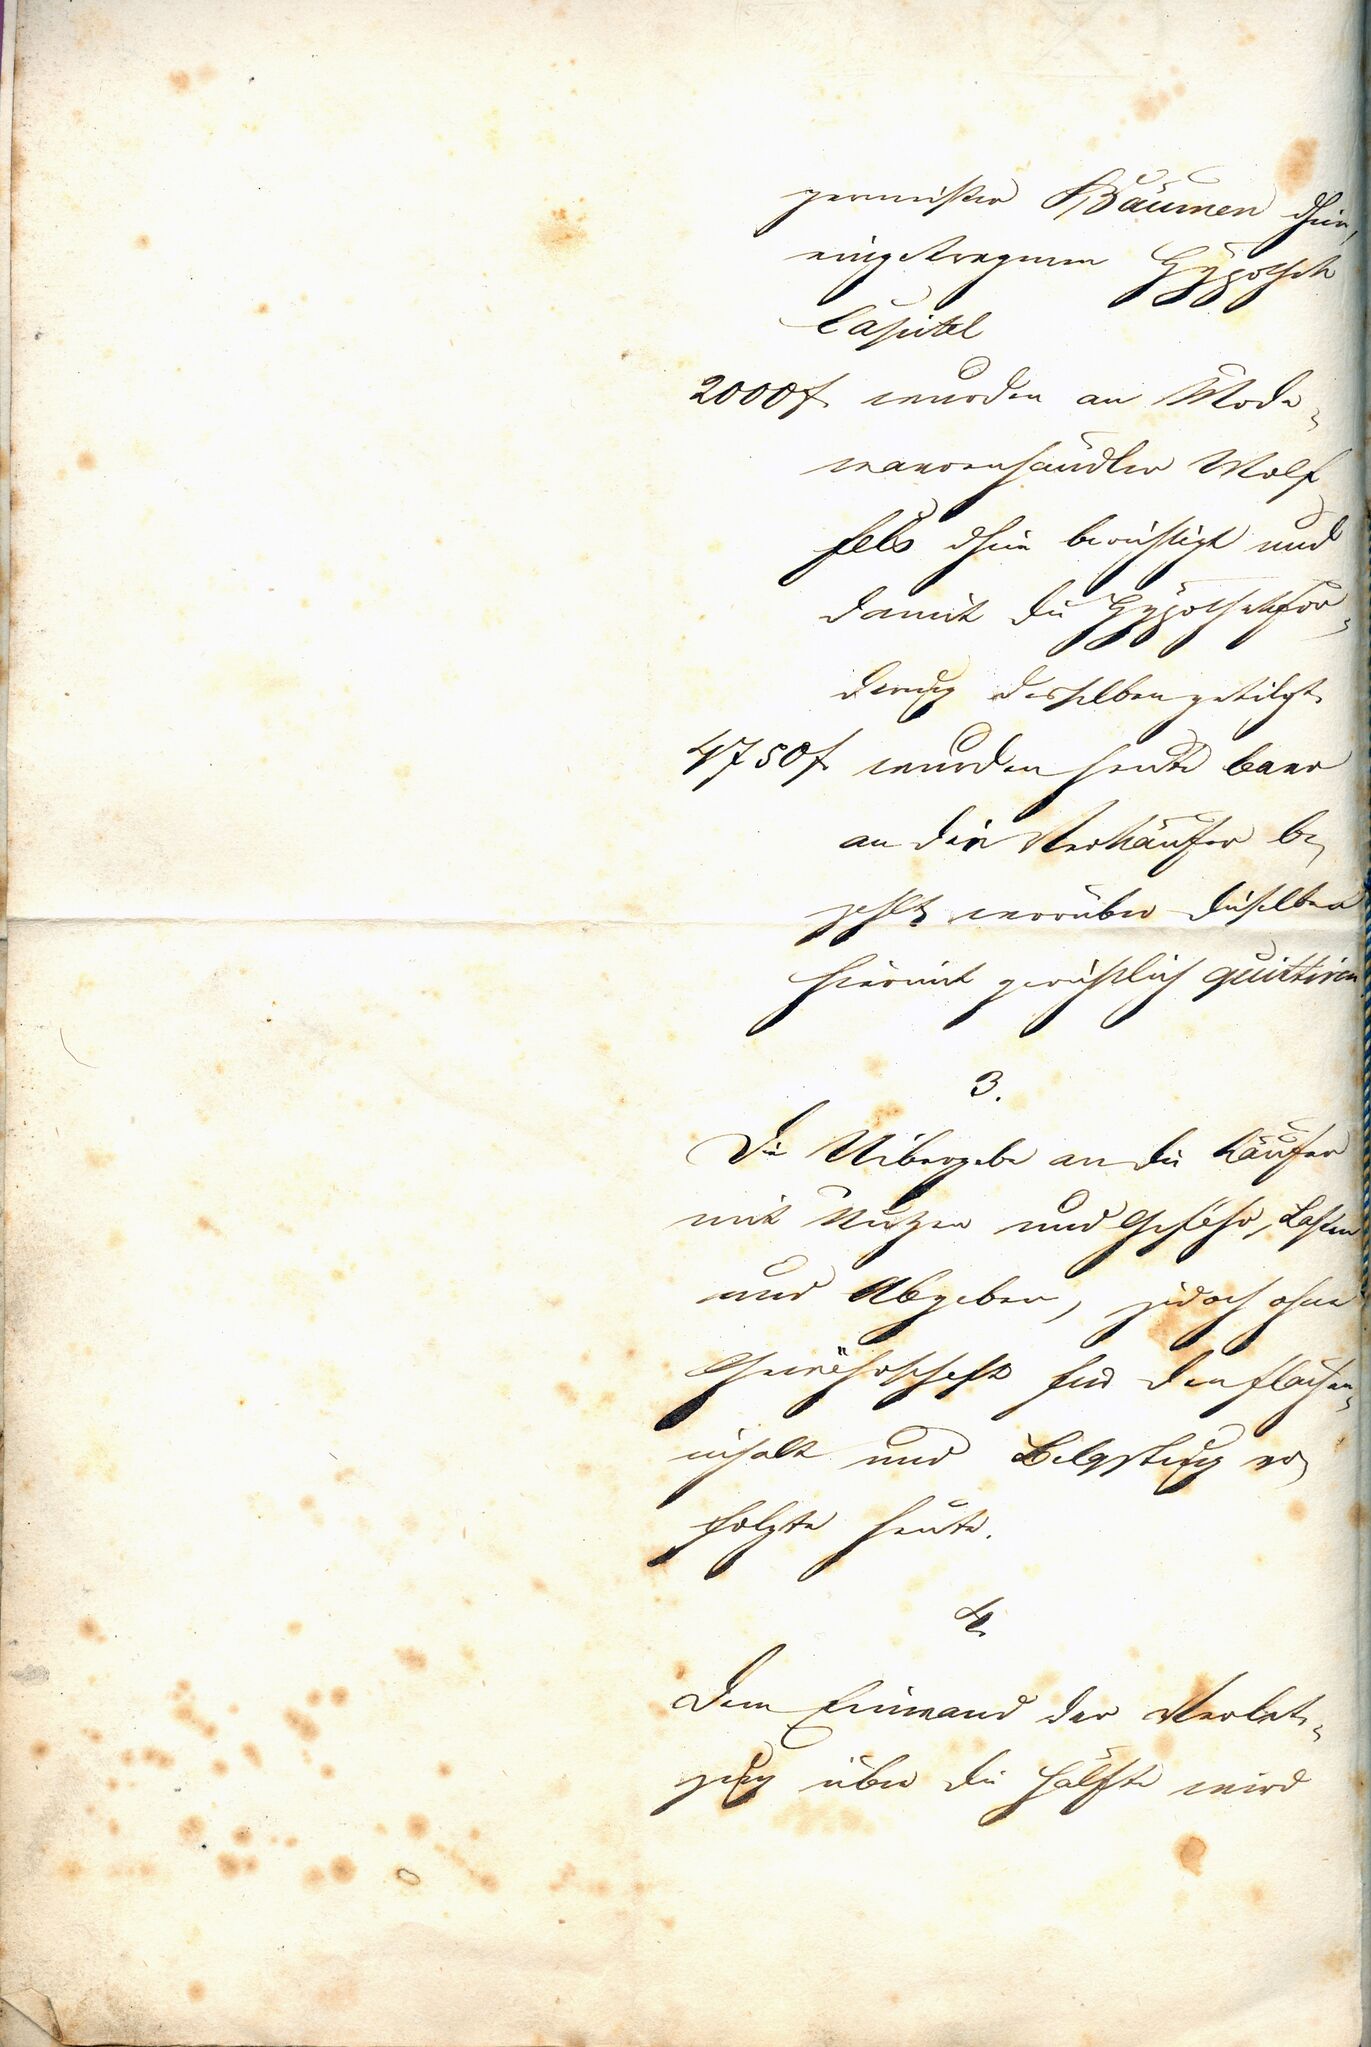 germeister Bäumen dhier,
eingetragenen Hypothek
Capital
2000 f. wurden an Mode-
waarenhändler Wolf
Fels dhier berichtigt und
damit die Hypothekfor-
derung desselben getilgt.
4750 f. wurden heute baar
an die Verkäufer be-
zahlt worüber dieselben
hiermit gerichtlich quittiren.
3.
Die Uibergabe an die Käufer
mit Nutzen und Gefahr, Lasten
und Abgaben, jedoch ohne
Gewährschaft für den Flächen-
inhalt und Belastung er-
folgte heute.
4.
Dem Einwand der Verletz-
zung über die Hälfte wird